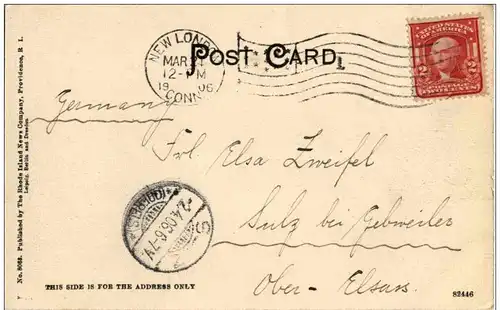 POST CARD.
NEW LONDON
MAR 21
12-M
1906
CONN.
UNITED STATES OF AMERICA
2 2
POSTAGE
TWO CENTS
Germany
Frl. Elsa Zweifel
Sulz bei Gebweiler
Ober-Elsass.
2.4.06.6-7V
THIS SIDE IS FOR THE ADDRESS ONLY
82446
No. 8063. Published by The Rhode Island News Company, Providence, R. I.
Leipzig, Berlin and Dresden